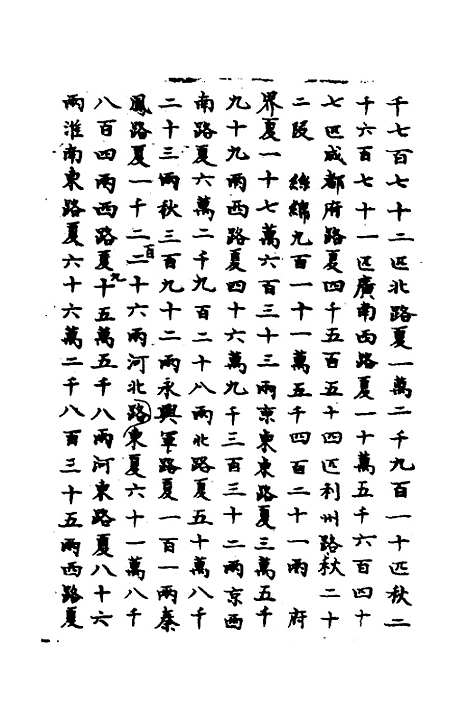 千七百七十二匹北路夏一萬二千九百一十匹秋二
千六百七十一匹廣南西路夏一十萬五千六百四十
七匹成都府路夏四千五百五十四匹利州路秋二十
二段　絲綿九百一十一萬五千四百二十一兩　府
界夏一十七萬六百三十三兩京東東路夏三萬五千
九十九兩西路夏四十六萬九千三百三十二兩京西
南路夏六萬二千九百二十八兩北路夏五十萬八千
二十三兩秋三百九十二兩永興軍路夏一百一兩秦
鳳路夏一千二百二十六兩河北路東夏六十一萬八千
八百四兩西路夏九十五萬五千八兩河東路夏八十六
兩淮南東路夏六十六萬二千八百三十五兩西路夏